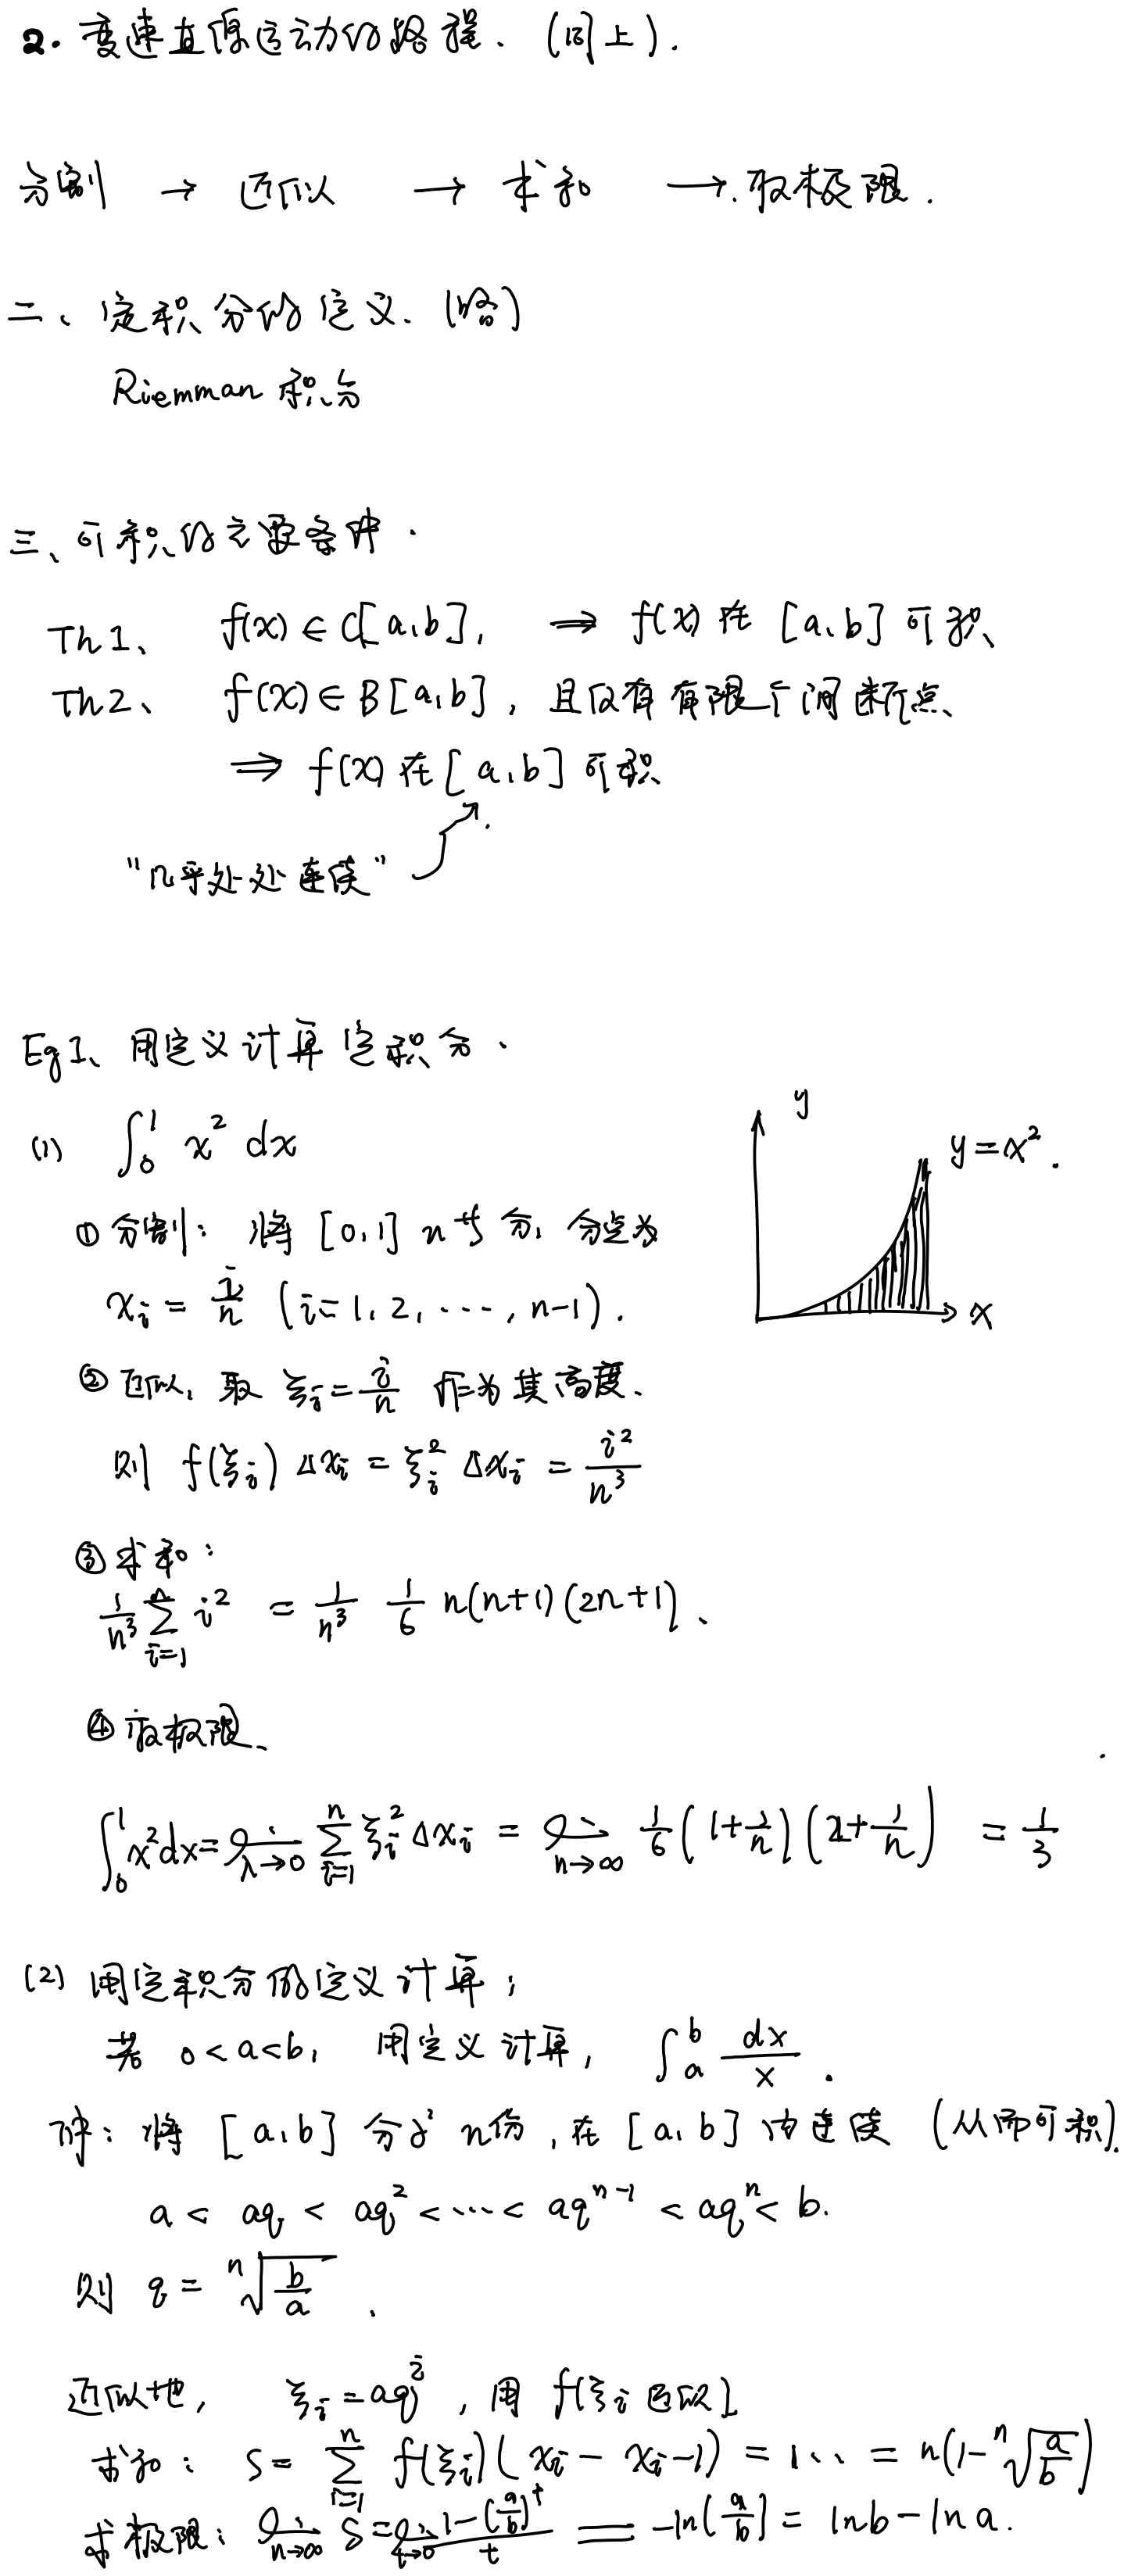 2. 变速直线运动的路程. (同上).
分割 → 近似 → 求和 → 取极限.
二、定积分的定义. (略)
Riemman 积分
三、可积的充要条件.
Th1、 f(x) ∈ C[a,b], ⇒ f(x) 在 [a,b] 可积、
Th2、 f(x) ∈ B[a,b], 且仅有有限个间断点、
⇒ f(x) 在 [a,b] 可积
"几乎处处连续"
Eg1、用定义计算定积分、
(1) ∫₀¹ x² dx
y
y = x².
x
① 分割: 将 [0,1] n等分, 分点为
xᵢ = i/n (i = 1, 2, ..., n-1).
② 近似, 取 ξᵢ = i/n 作为其高度.
则 f(ξᵢ) Δxᵢ = ξᵢ² Δxᵢ = i²/n³
③ 求和:
1/n³ ∑ᵢ₌₁ⁿ i² = 1/n³ 1/6 n(n+1)(2n+1)、
④ 取极限、
∫₀¹ x²dx = lim_{λ→0} ∑ᵢ₌₁ⁿ ξᵢ² Δxᵢ = lim_{n→∞} 1/6 (1+1/n)(2+1/n) = 1/3
(2) 用定积分的定义计算;
若 0<a<b, 用定义计算, ∫ₐᵇ dx/x.
解: 将 [a,b] 分为 n份, 在 [a,b] 内连续 (从而可积).
a < aq < aq² < ... < aqⁿ⁻¹ < aqⁿ < b.
则 q = ⁿ√(b/a).
近似地, ξᵢ = aqⁱ, 用 f(ξᵢ 近似]
求和: S = ∑ᵢ₌₁ⁿ f(ξᵢ)(xᵢ - xᵢ-1) = ... = n(1-ⁿ√(a/b))
求极限: lim_{n→∞} S = lim_{t→0} (1-(a/b)ᵗ)/t = -ln(a/b) = lnb - lna.